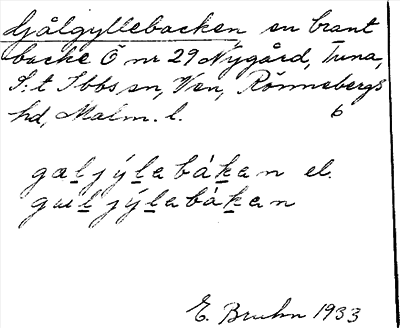 Gjälgyllebacken en brant
backe Ö nr 29 Nygård, Tuna,
S:t Ibbs sn, Ven, Rönnebergs
hd, Malm. l. 6
gæljýlabákan el.
gæljýlabákan
E. Bruhn 1933